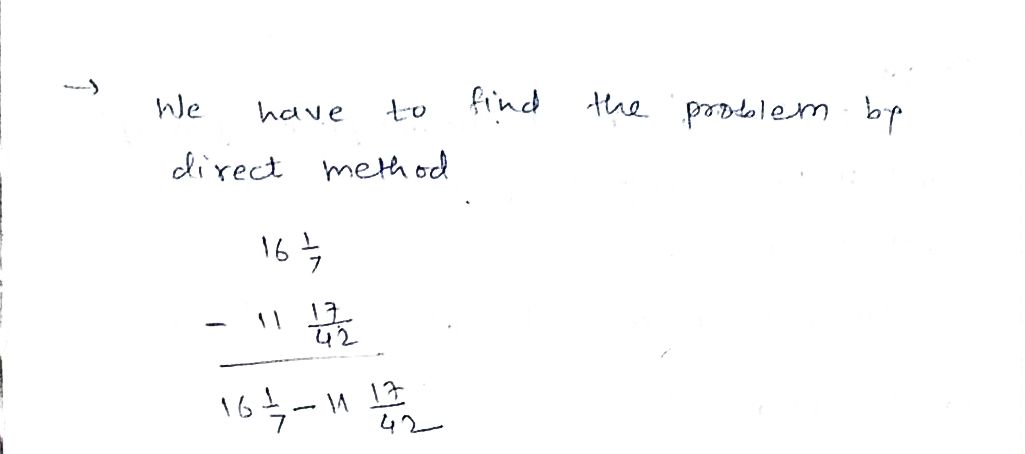 → We have to find the problem by
direct method
16 1/7
- 11 17/42
16 1/7 - 11 17/42